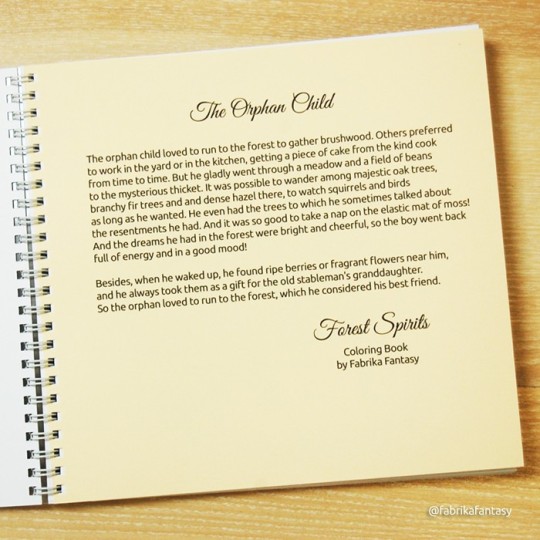 The Orphan Child
The orphan child loved to run to the forest to gather brushwood. Others preferred
to work in the yard or in the kitchen, getting a piece of cake from the kind cook
from time to time. But he gladly went through a meadow and a field of beans
to the mysterious thicket. It was possible to wander among majestic oak trees,
branchy fir trees and and dense hazel there, to watch squirrels and birds
as long as he wanted. He even had the trees to which he sometimes talked about
the resentments he had. And it was so good to take a nap on the elastic mat of moss!
And the dreams he had in the forest were bright and cheerful, so the boy went back
full of energy and in a good mood!
Besides, when he waked up, he found ripe berries or fragrant flowers near him,
and he always took them as a gift for the old stableman's granddaughter.
So the orphan loved to run to the forest, which he considered his best friend.
Forest Spirits
Coloring Book
by Fabrika Fantasy
@fabrikafantasy